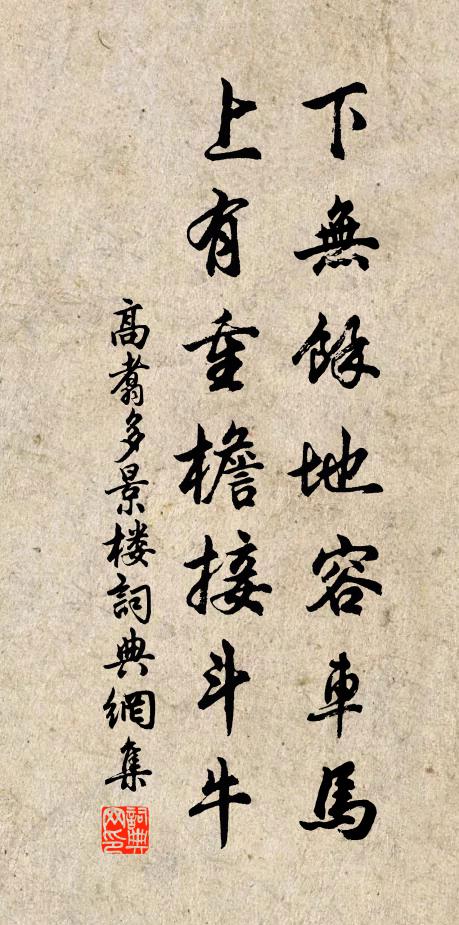 下無餘地容車馬
上有重檐接斗牛
高翥多景楼詞典網集
詞典网印